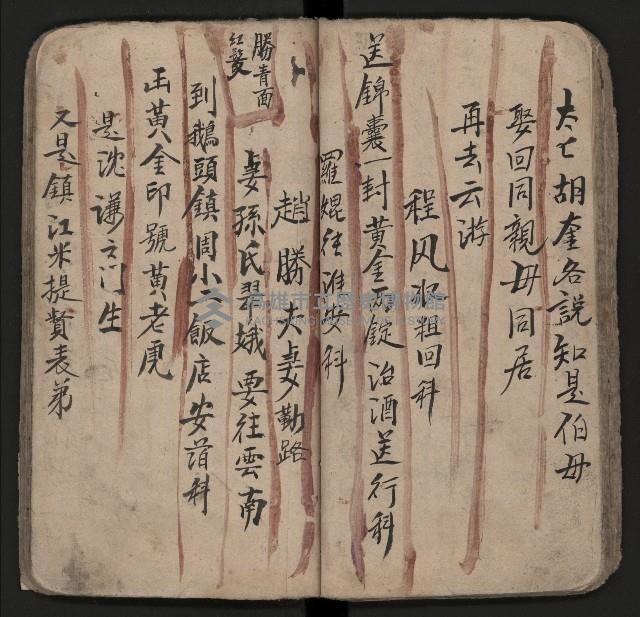 太七胡奎各説知是伯母
娶回同親母同居
再去云游
程风收租回科
送錦囊一封黄金兩錠治酒送行科
羅焜往淮安科
趙勝夫妻勤路
勝青面
紅髮
妻孫氏翠娥要往雲南
到鵝頭鎮周小二飯店安蓿科
正黄金印號黄老虎
是沈謙之门生
又是鎮江米提賢表弟
高雄市立歷史博物館
KAOHSIUNG MUSEUM OF HISTORY